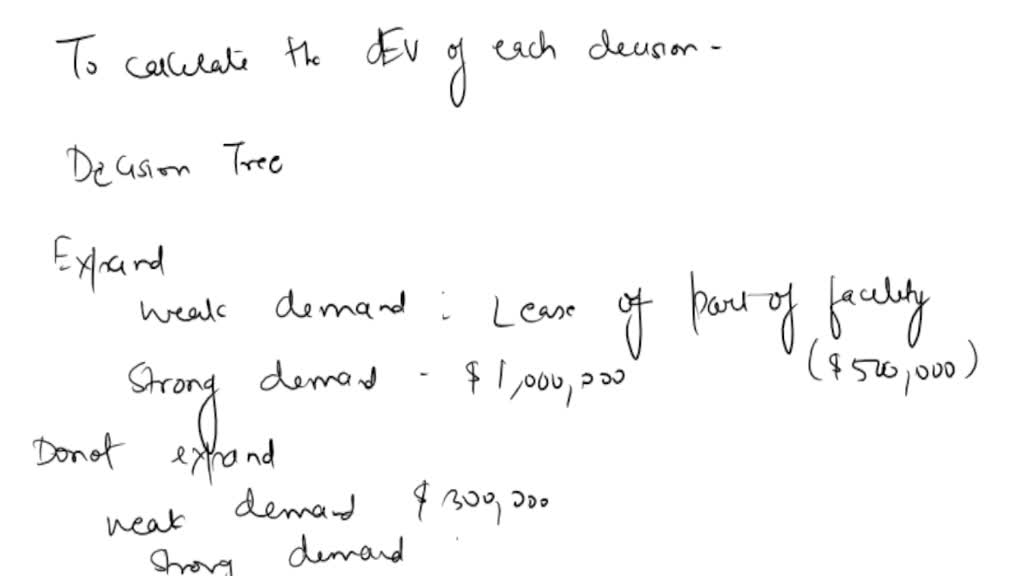 To calculate the dEV of each decision -
Decision Tree
Expand
weak demand : Lease of part of facility
($500,000)
Strong demand - $1,000,000
Donot expand
weak demand $300,000
Strong demand :